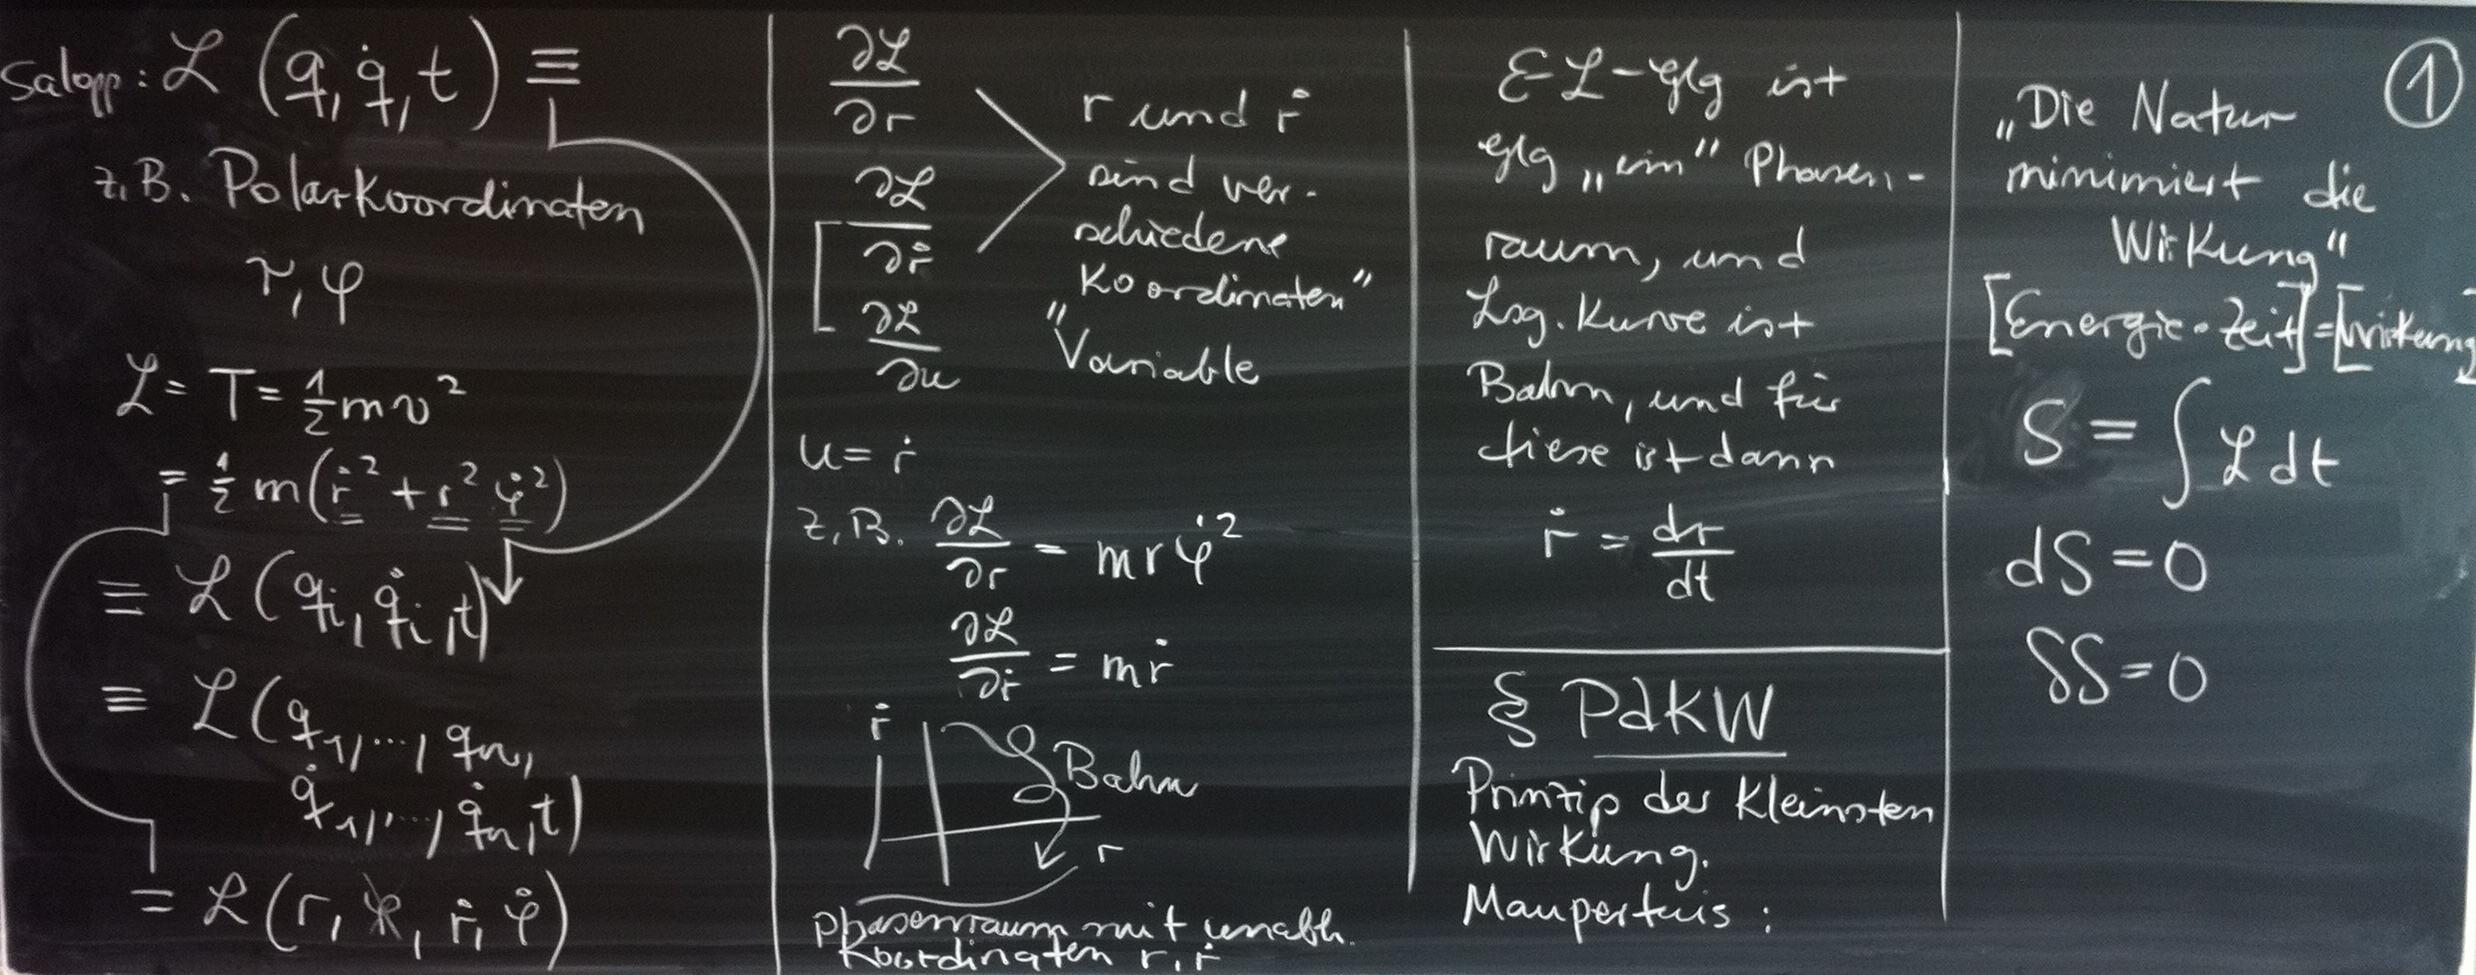 Salopp: ℒ (q, q̇, t) ≡
z.B. Polarkoordinaten
r, φ
ℒ = T = ½ m v²
= ½ m (ṙ² + r² φ̇²)
≡ ℒ (qᵢ, q̇ᵢ, t)
≡ ℒ (q₁, ..., qₙ,
q̇₁, ..., q̇ₙ, t)
= ℒ (r, φ, ṙ, φ̇)
∂ℒ
∂r
∂ℒ
∂ṙ
∂ℒ
∂u
r und ṙ
sind ver-
schiedene
"Koordinaten"
Variable
u = ṙ
z.B. ∂ℒ/∂r = m r φ̇²
∂ℒ/∂ṙ = m ṙ
ṙ
Bahn
r
Phasenraum mit unabh.
Koordinaten r, ṙ
EL-Glg ist
Glg „im" Phasen-
raum, und
Lsg. Kurve ist
Bahn, und für
diese ist dann
ṙ = dr/dt
§ PdKW
Prinzip der Kleinsten
Wirkung.
Maupertuis :
1
„Die Natur
minimiert die
Wirkung"
[Energie · Zeit] = [Wirkung]
S = ∫ ℒ dt
dS = 0
δS = 0